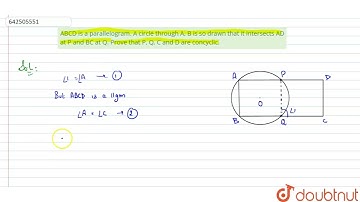 642505551
ABCD is a parallelogram. A circle through A, B is so drawn that it intersects AD
at P and BC at Q. Prove that P, Q, C and D are concyclic.
Sol:
∠1 = ∠A → ①
But ABCD is a llgm
∠A = ∠C → ②
A P D
O ∠1
B Q C
doubtnut